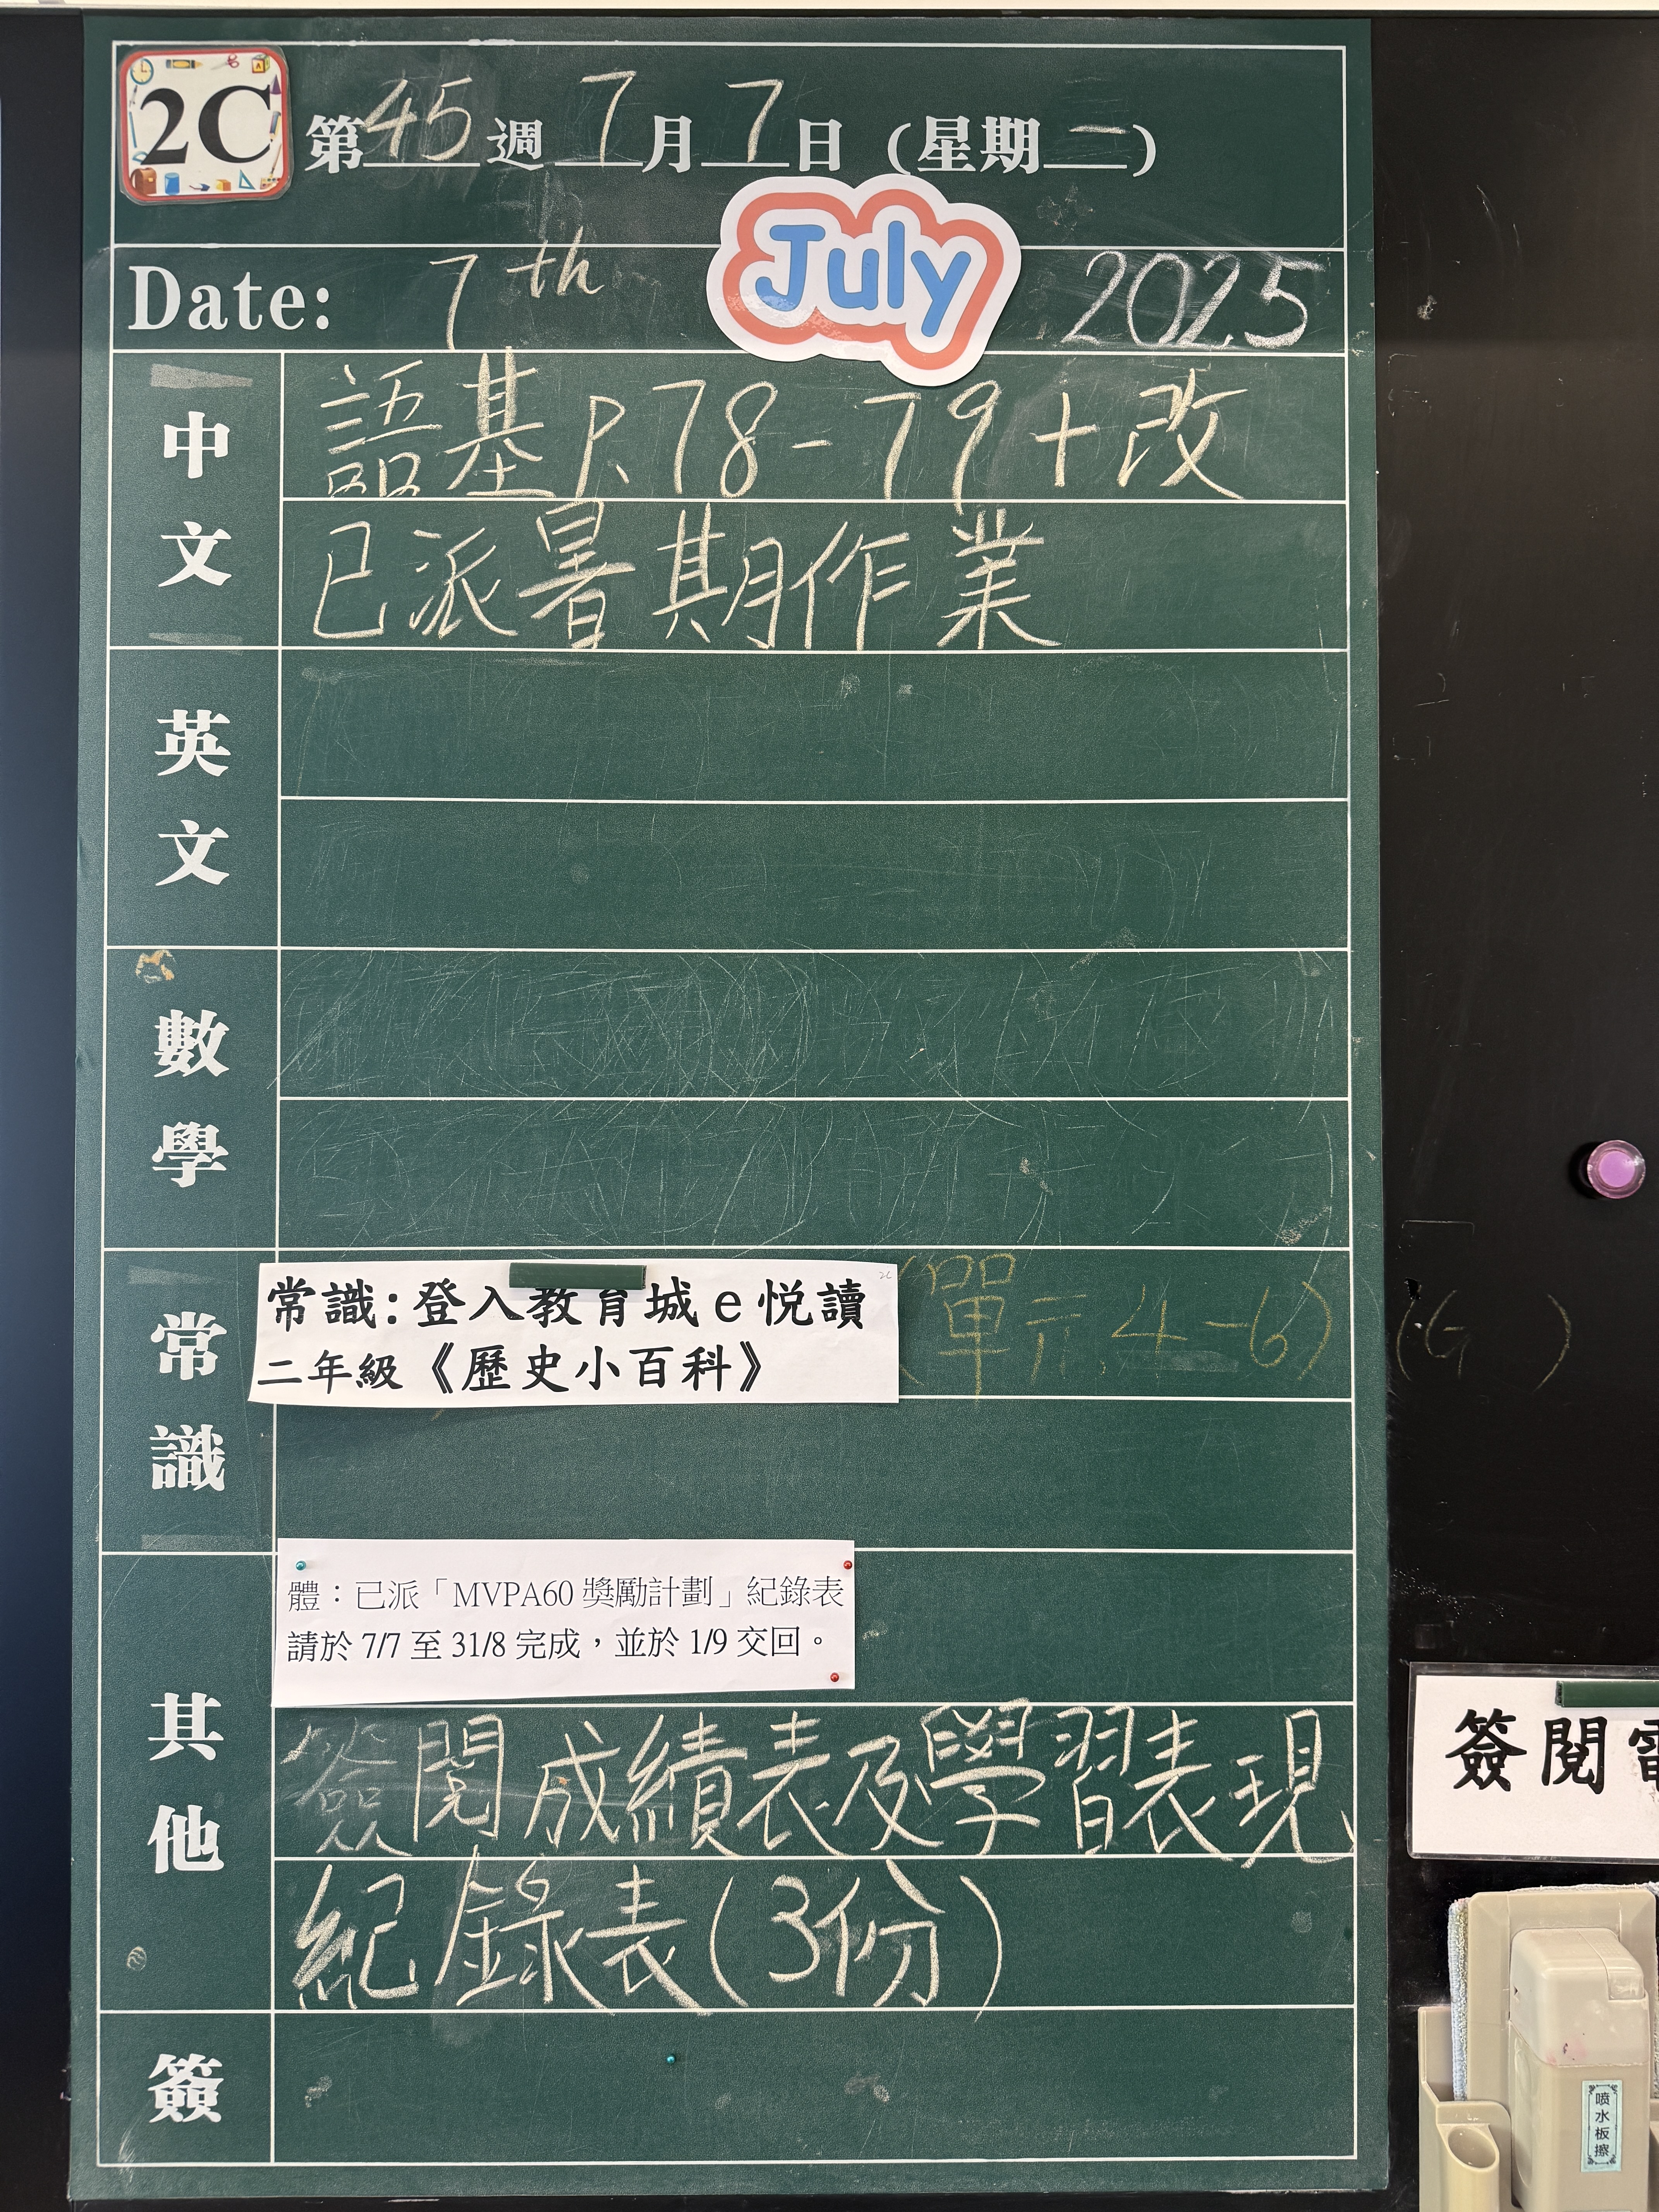 2C 第45週7月7日（星期一）
Date: 7th July 2025
中文
語基P.78-79+改
已派暑期作業
英文
數學
常識
常識:登入教育城e悅讀 2C
二年級《歷史小百科》
(單元4-6)
(G )
其他
體：已派「MVPA60獎勵計劃」紀錄表
請於 7/7 至 31/8 完成，並於 1/9 交回。
簽閱成績表及學習表現
紀錄表(3份)
簽閱電
簽
喷水板擦